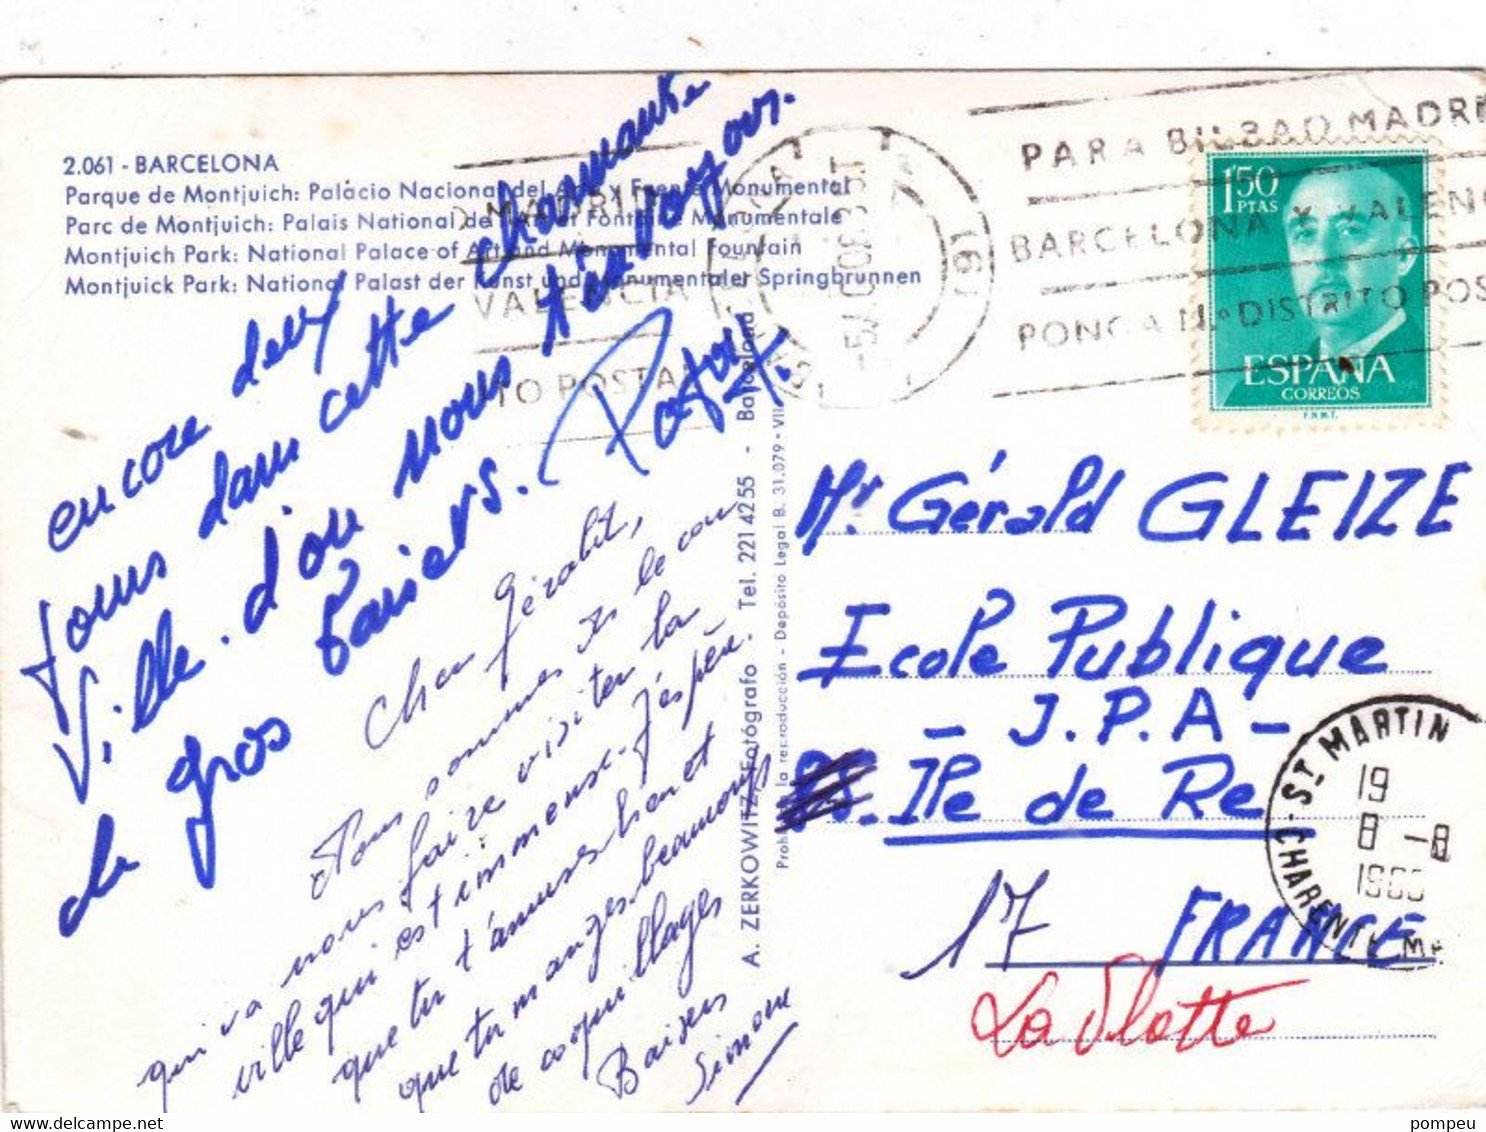 2.061 - BARCELONA
Parque de Montjuich: Palácio Nacional del Arte y Fuente Monumental
Parc de Montjuich: Palais National de l'Art et Fontaine Monumentale
Montjuich Park: National Palace of Art and Monumental Fountain
Montjuick Park: National Palast der Kunst und Monumentaler Springbrunnen
MADRID
VALENCIA
TO POSTAL
PARA BILBAO MADRI
BARCELONA Y VALENC
PONGA N.º DISTRITO POS
1'50
PTAS
ESPAÑA
CORREOS
F.N.M.T.
encore deux
jours dans cette charmante
ville. d'où nous t'envoyons
de gros baisers.
Cher Gérald,
Nous sommes
qui va nous faire visiter la
ville qui est immense. J'espère
que tu t'amuses bien et
que tu manges beaucoup
de coquillages
Baisers
Simone
A. ZERKOWITZ, Fotógrafo Tel. 221 42 55 - Barcelona
Prohibida la reproducción - Depósito Legal B. 31.079 - VII
Mr Gérald GLEIZE
Ecole Publique
- J.P.A -
Ile de Re
17 FRANCE
La Flotte
ST MARTIN
19
8 - 8
CHARENTE
pompeu